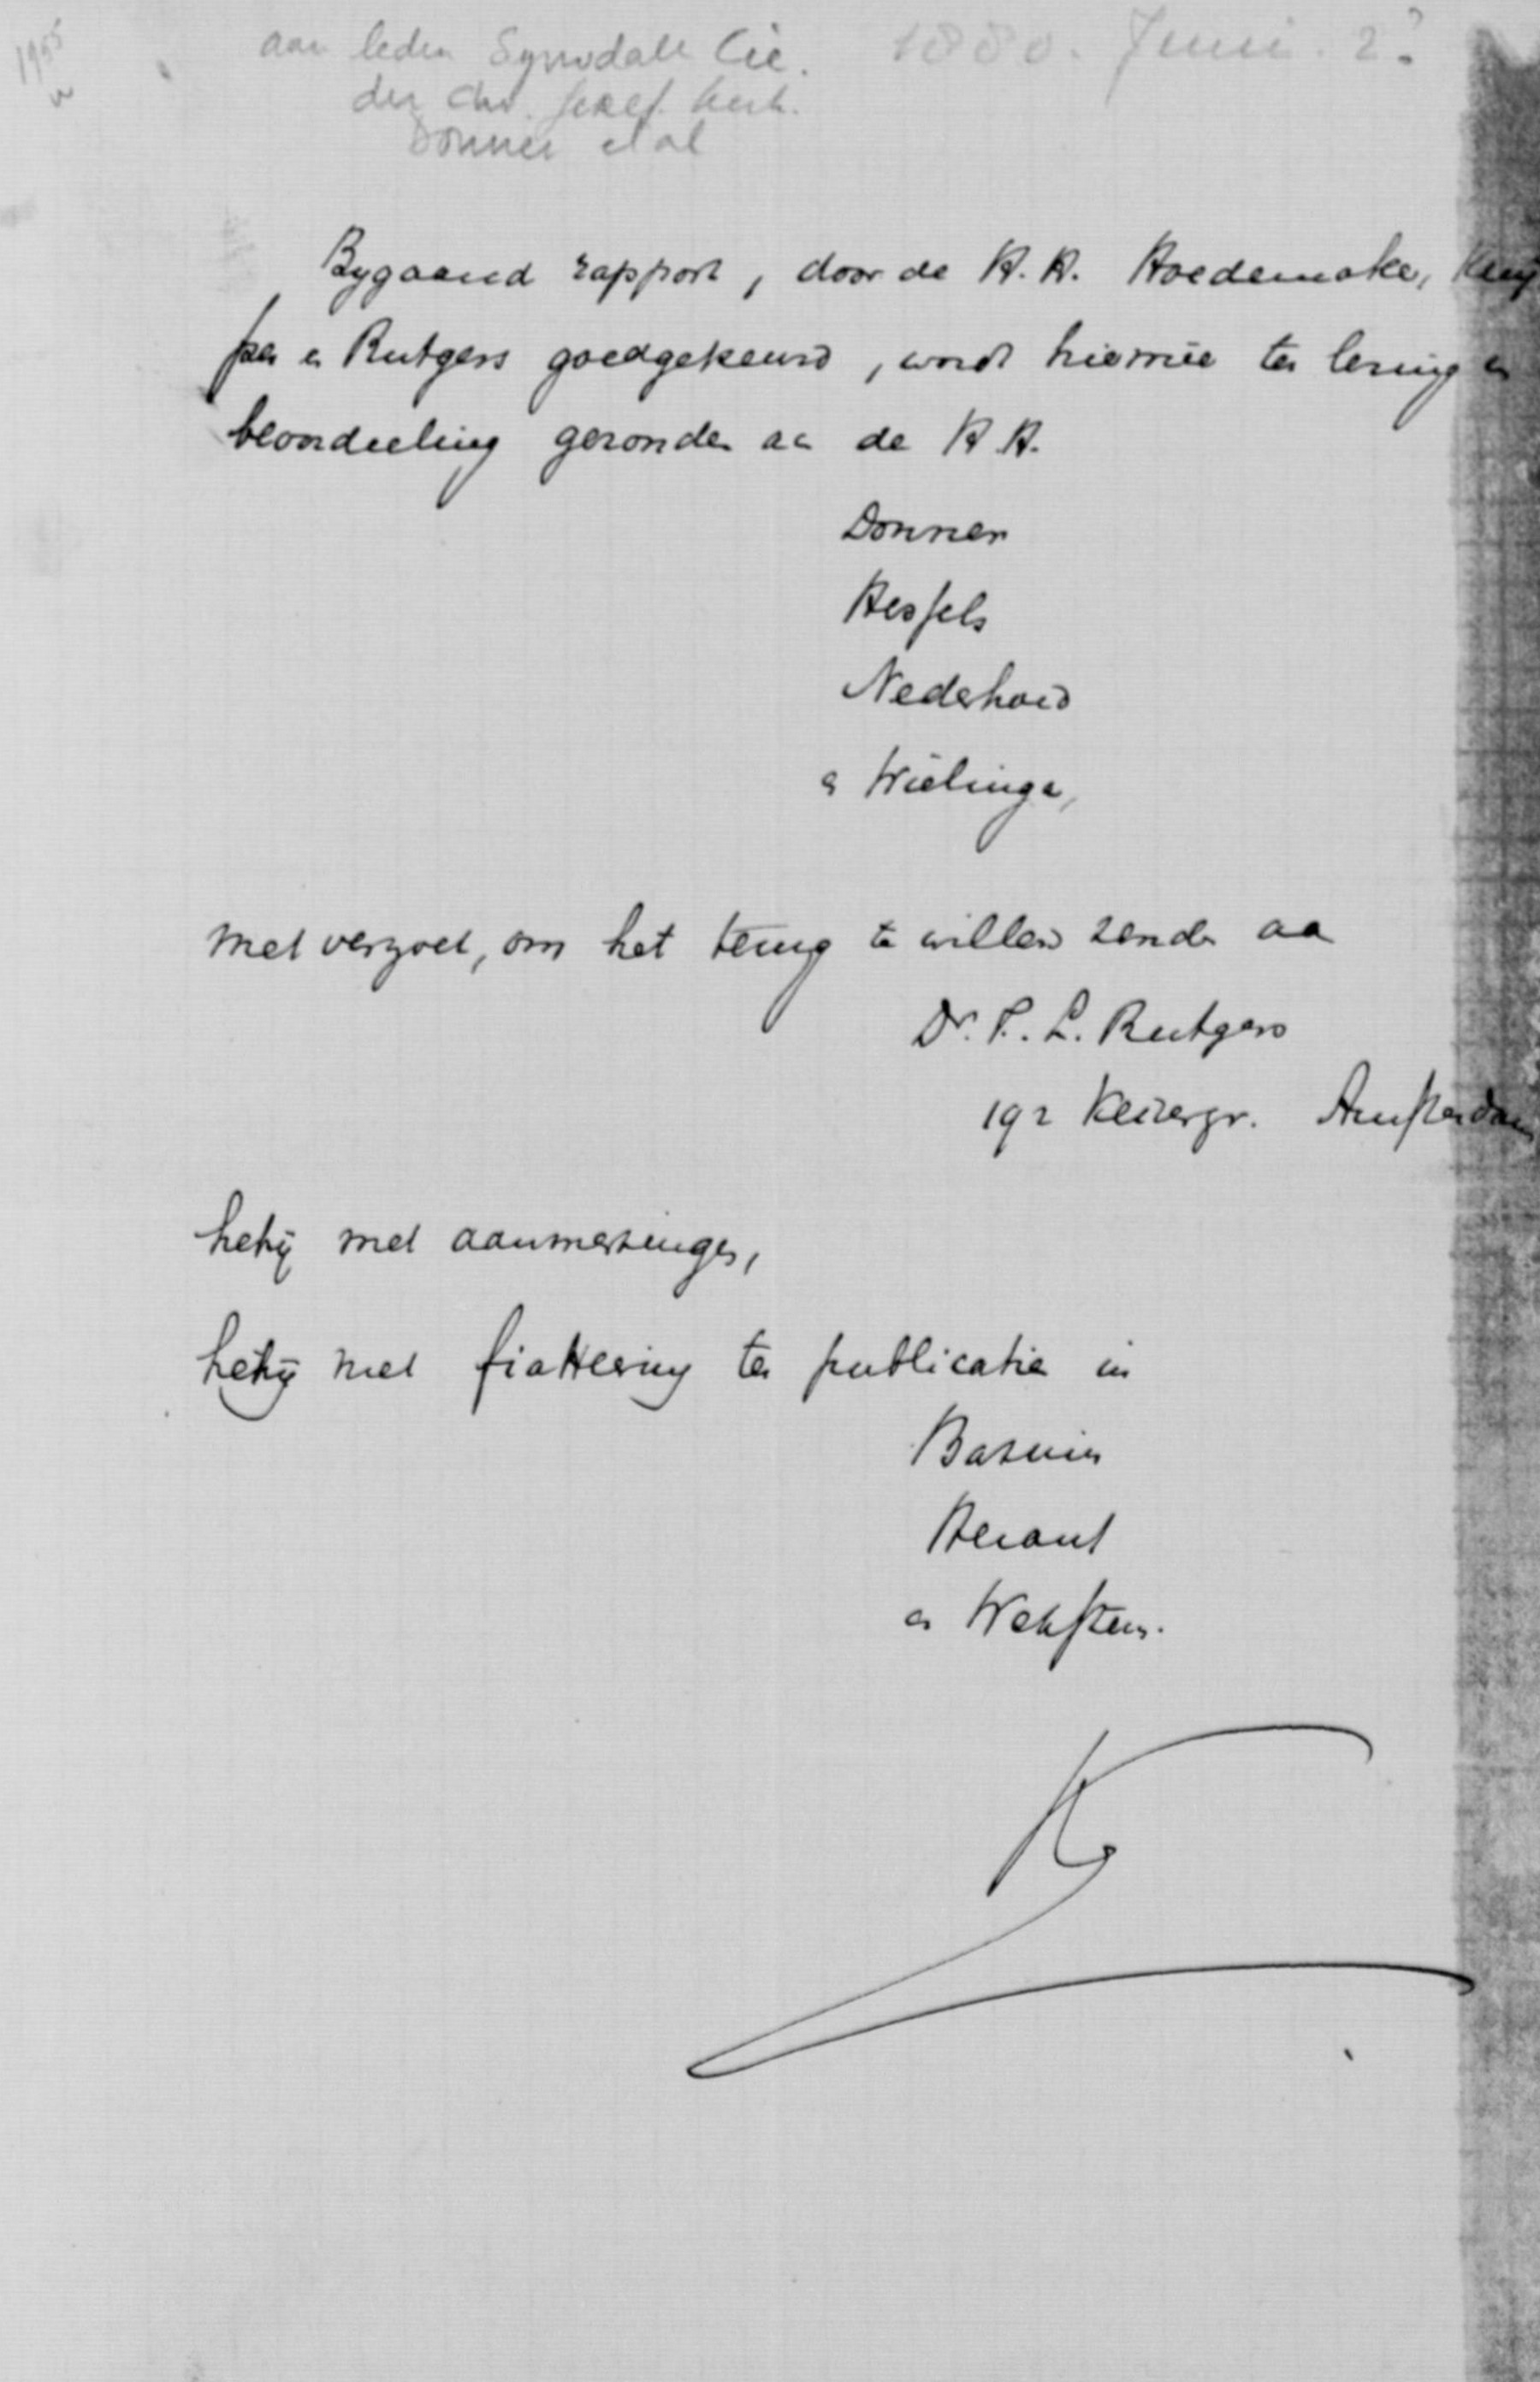 1955
aan leden Synodale Cie. 1880. Juni. 2?
der Chr. Geref. Kerk.
Donner et al
Bygaand rapport, door de H.H. Hoedemaker, Kuy
per en Rutgers goedgekeurd, wordt hiermee ter lezing en
beoordeeling gezonden aan de H.H.
Donner
Hessels
Nederhoed
en Wielinga,
met verzoek, om het terug te willen zenden aan
Dr. F. L. Rutgers
192 Keizergr. Amsterdam
hetzij met aanmerkingen,
hetzij met fiatteering ter publicatie in
Bazuin
Heraut
en Wekstem.
K